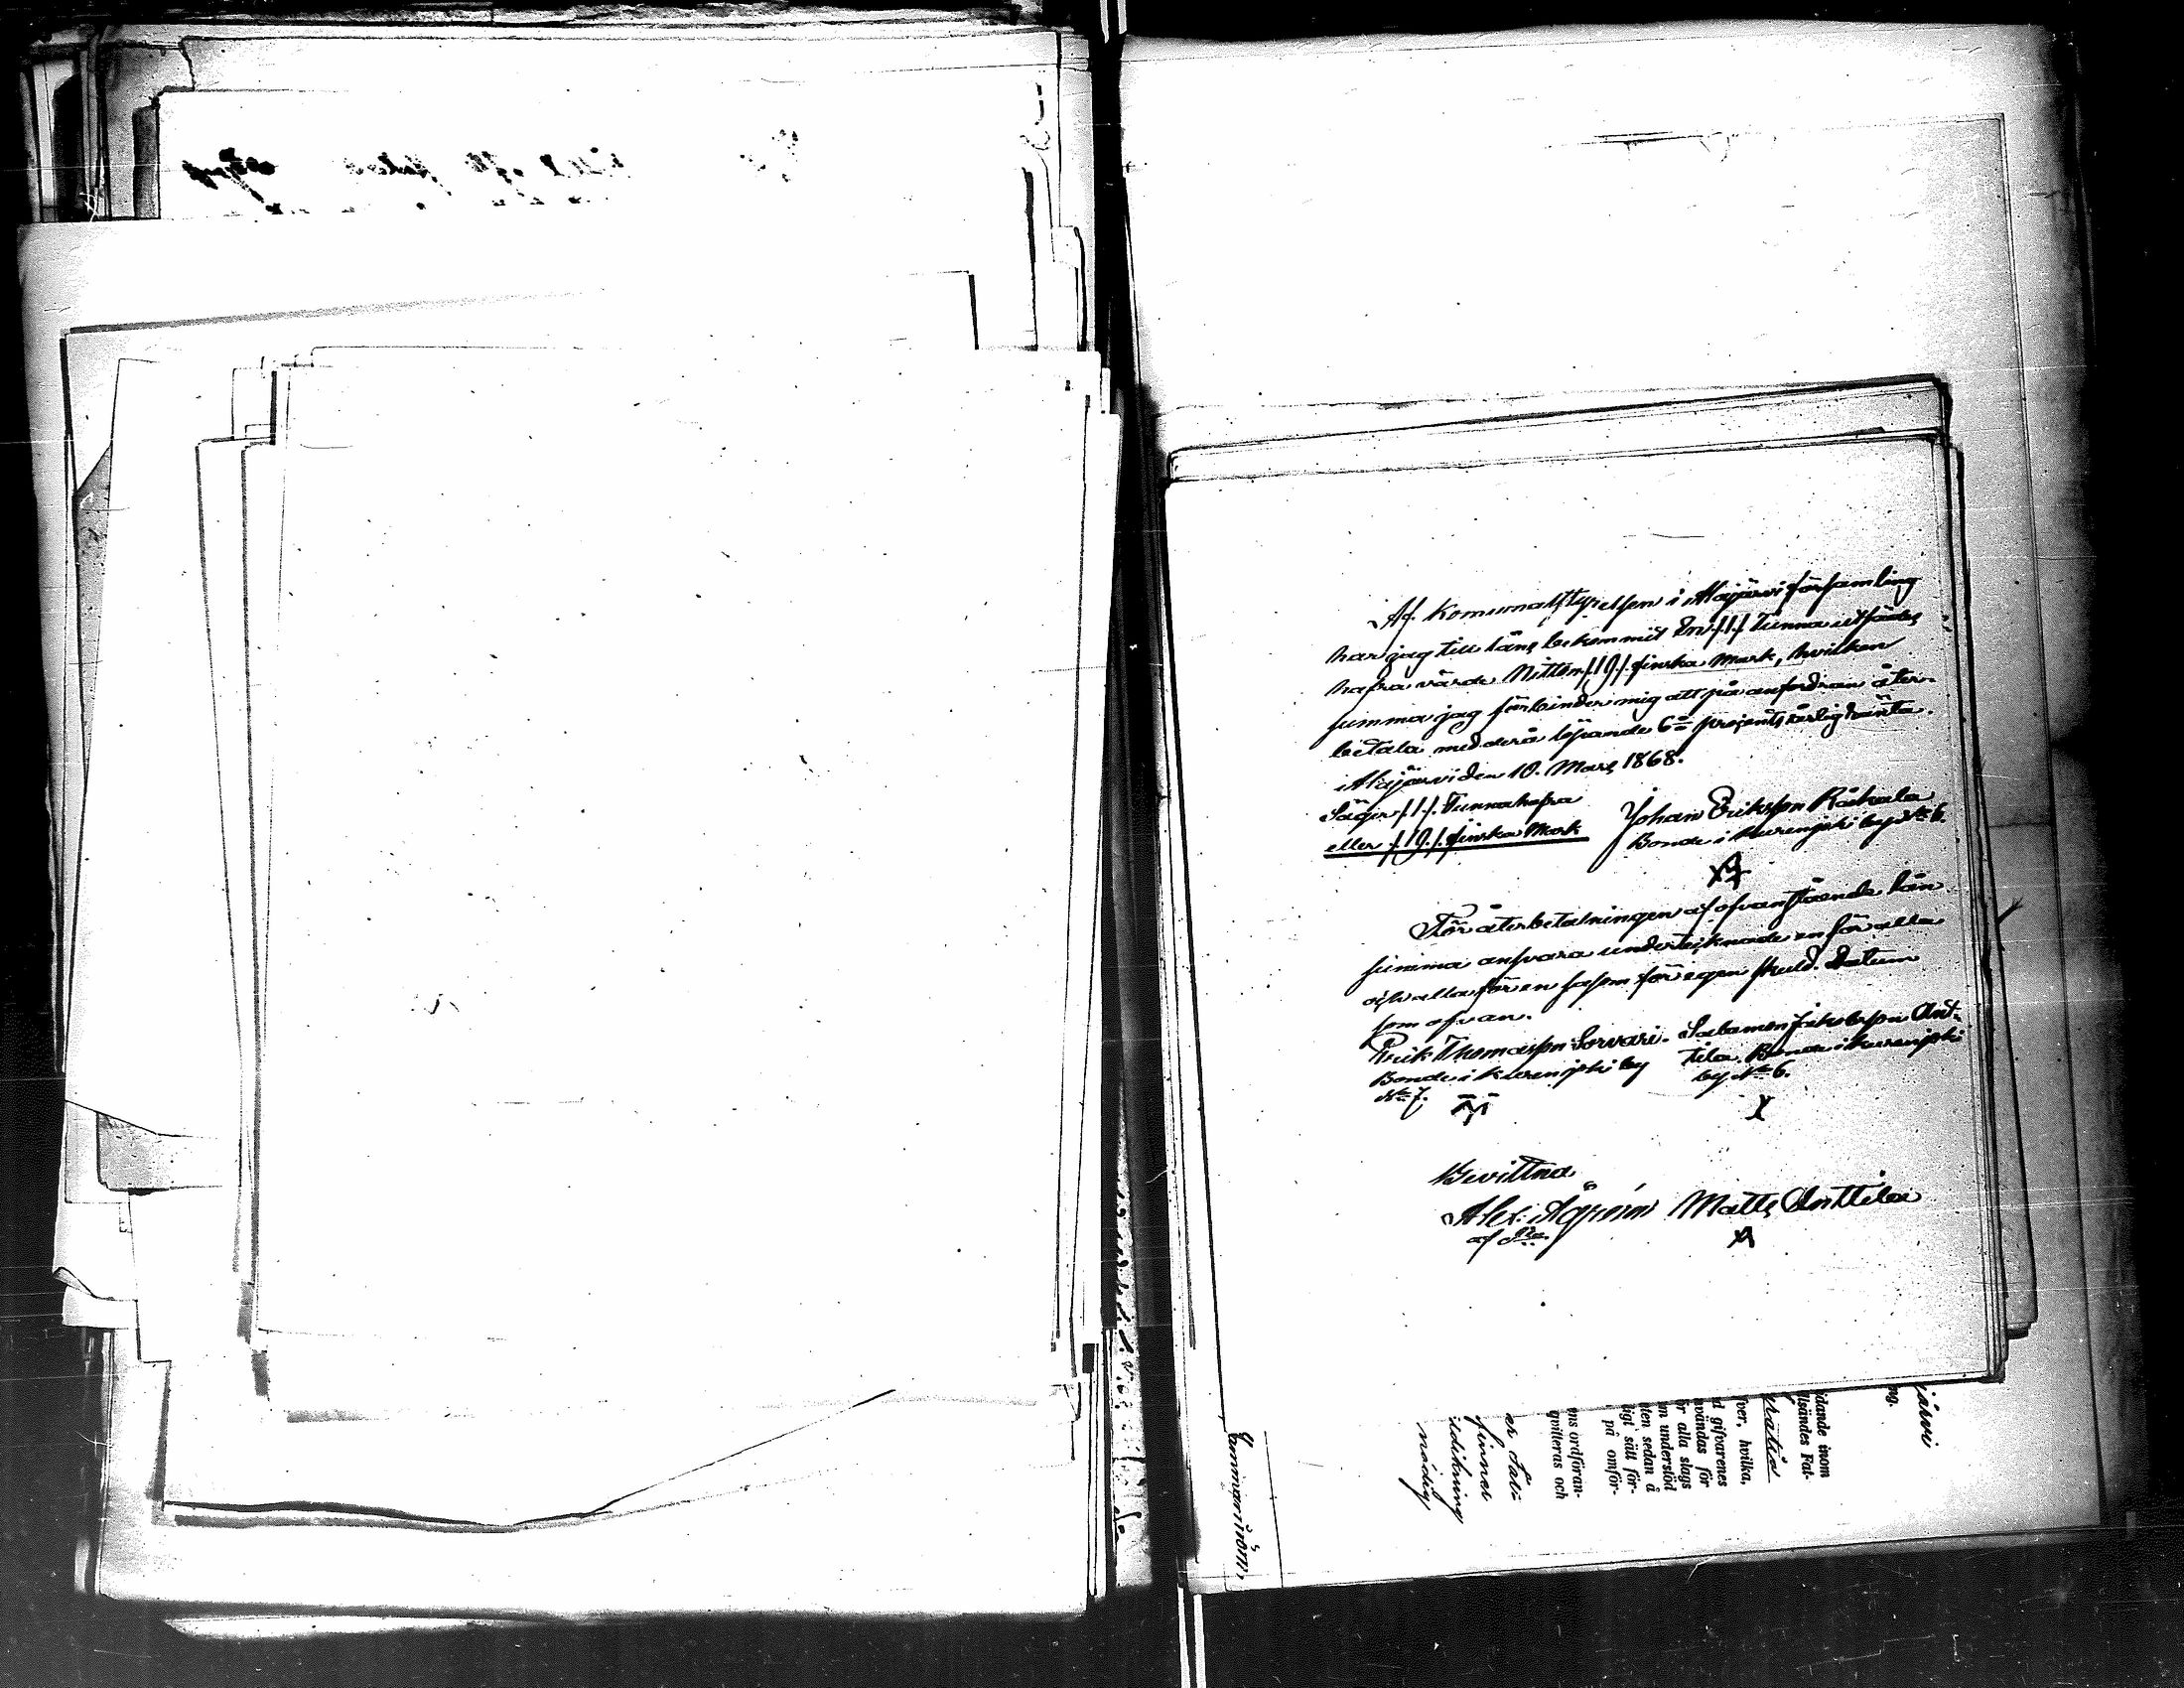 Af Komunalstyrelsen i Alajärvi församling
har jag till låns bekommit En /1/ Tunna utsädes
hafra värde Nitton /19/ finska Mark, hvilken
summa jag förbinder mig att på anfordran åter-
betala med derå löpande 6 procents årlig ränta.
Alajärvi den 10. Mars 1868.
Säger /1/ Tunna hafra
eller /19/ finska Mark
Johan Eriksson
Bonde i Kurenjoki by No 6.
För återbetalningen af ofvanstående lån
summa ansvara undertecknade en för alla
och alla för en såsom för egen skuld. Datum
som ofvan.
Erik Thomasson Sorvari.
Bonde i Kurenjoki by
No 7.
Salomon Jakobsson Ant-
tila. Bonde i Kurenjoki
by No 6.
Bevittna
Alex:
Matts Anttila
järvi
ng.
idande inom
llsändes Fat-
fver, hvilka,
d gifvarenes
nvändas för
ör alla slags
m understöd
ten sedan å
ligt sätt för-
på omför-
ns ordföran-
qvitteras och
finner
nödig